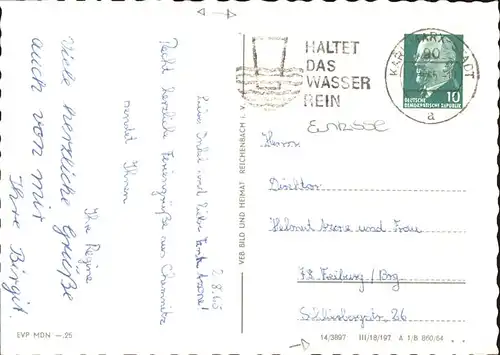 2.8.65
Lieber Onkel und liebe Tante Arone!
Recht herzliche Feriengrüße aus Chemnitz
sendet Ihnen
Ihre Regine
Viele herzliche Grüße
auch von mir
Ihre Birgit.
EVP MDN —.25
VEB BILD UND HEIMAT REICHENBACH I. V.
HALTET
DAS
WASSER
REIN
KARL-MARX-STADT
90
a
DEUTSCHE
DEMOKRATISCHE REPUBLIK
10
Herrn
Direktor
Helmut Arone und Frau
78 Freiburg/Brg
14/3897 III/18/197 A 1/B 860/64